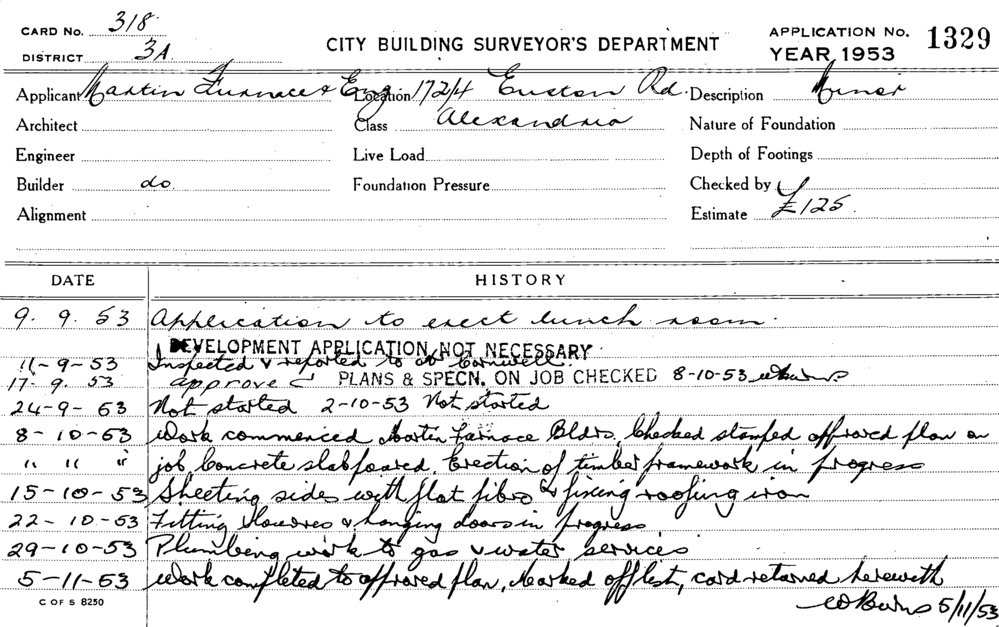 CARD No. 318
DISTRICT 3A
CITY BUILDING SURVEYOR'S DEPARTMENT
APPLICATION No. 1329
YEAR 1953
Applicant Martin Furnace & Eng Location 172/4 Euston Rd. Description Minor
Architect Class Alexandria Nature of Foundation
Engineer Live Load Depth of Footings
Builder do. Foundation Pressure Checked by
Alignment Estimate £125
DATE HISTORY
9. 9. 53 Application to erect lunch room.
DEVELOPMENT APPLICATION NOT NECESSARY
11-9-53 Inspected & reported to Mr Cornwell.
17. 9. 53 approved PLANS & SPECN. ON JOB CHECKED 8-10-53 WBurns.
24-9-53 Not started 2-10-53 Not started
8-10-53 Work commenced Martin Furnace Bldrs. Checked stamped approved plan on
" " " job, Concrete slab poured. Erection of timber framework in progress
15-10-53 Sheeting sides with flat fibro & fixing roofing iron
22-10-53 Fitting louvres & hanging doors in progress
29-10-53 Plumbing work to gas & water services
5-11-53 Work completed to approved plan, Marked off list, card returned herewith
C OF S 8250
WBurns 5/11/53